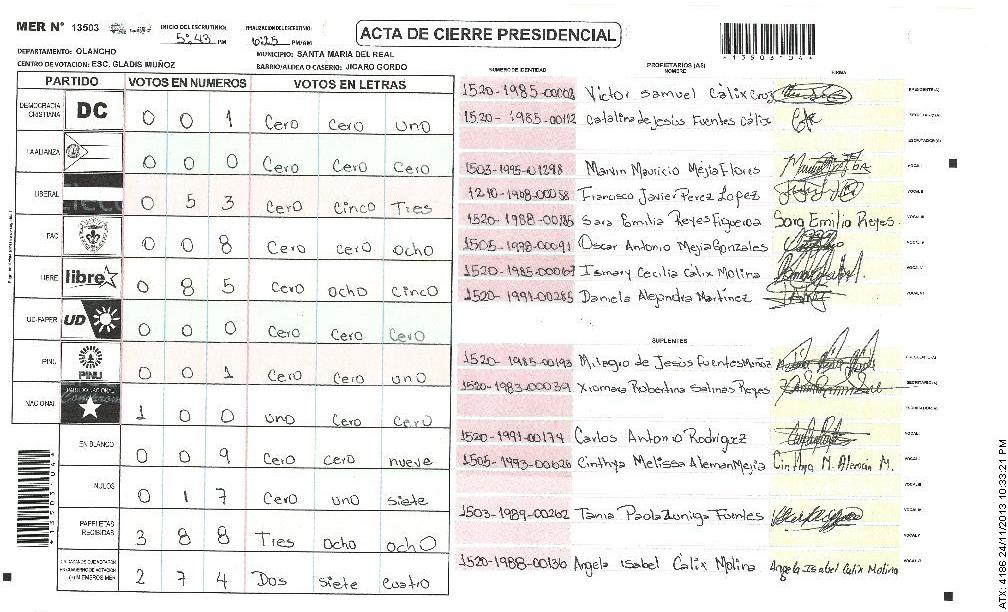 MER N° 13503
INICIO DEL ESCRUTINIO: 5:43 PM
FINALIZACION DEL ESCRUTINIO: 6:25 PM/AM
ACTA DE CIERRE PRESIDENCIAL
*13503104*
DEPARTAMENTO: OLANCHO
MUNICIPIO: SANTA MARIA DEL REAL
CENTRO DE VOTACION: ESC. GLADIS MUÑOZ
BARRIO/ALDEA O CASERIO: JICARO GORDO
PARTIDO VOTOS EN NUMEROS VOTOS EN LETRAS
DEMOCRACIA CRISTIANA DC 0 0 1 Cero Cero uno
LA ALIANZA 0 0 0 Cero Cero Cero
LIBERAL 0 5 3 Cero Cinco Tres
PAC 0 0 8 Cero Cero ocho
LIBRE libre 0 8 5 Cero ocho cinco
UD-FAPER UD 0 0 0 Cero Cero Cero
PINU PINU 0 0 1 Cero Cero uno
NACIONAL 1 0 0 uno Cero Cero
EN BLANCO 0 0 9 Cero Cero nueve
NULOS 0 1 7 Cero uno siete
PAPELETAS RECIBIDAS 3 8 8 Tres ocho ocho
2 7 4 Dos siete cuatro
NUMERO DE IDENTIDAD PROPIETARIOS (AS) NOMBRE FIRMA
1520-1985-00003 Victor Samuel Cálix Cruz PRESIDENTE(A)
1520-1985-00112 Catalina de Jesús Fuentes Cálix SECRETARIO(A)
ESCRUTADOR(A)
1503-1995-01298 Marvin Mauricio Mejia Flores VOCAL I
1210-1968-00058 Francisco Javier Perez Lopez VOCAL II
1520-1988-00185 Sara Emilia Reyes Figueroa Sara Emilia Reyes. VOCAL III
1505-1998-00091 Oscar Antonio Mejia Gonzales
1520-1985-00067 Ismary Cecilia Cálix Molina
1520-1991-00285 Daniela Alejandra Martínez
SUPLENTES
1520-1985-00193 Milagro de Jesús Fuentes Muñoz PRESIDENTE(A)
1520-1983-00039 Xiomara Robertina Salinas Reyes SECRETARIO(A)
ESCRUTADOR(A)
1520-1991-00179 Carlos Antonio Rodriguez
1505-1993-00626 Cinthya Melissa Aleman Mejia Cinthya M. Alemán M.
1503-1989-00262 Tania Paola Zuniga Fuentes
1520-1988-00136 Angela Isabel Cálix Molina Angela Isabel Calix Molina
*13503104*
ATX: 4186 24/11/2013 10:33:21 PM